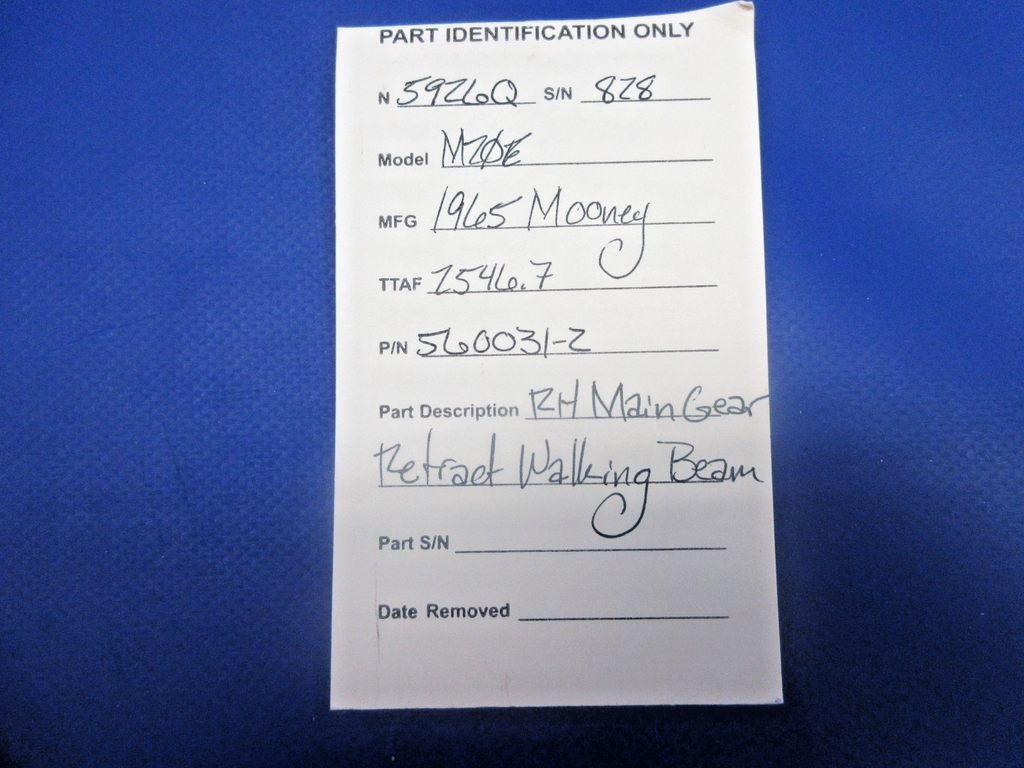 PART IDENTIFICATION ONLY
N 5926Q S/N 828
Model M20E
MFG 1965 Mooney
TTAF 2546.7
P/N 560031-2
Part Description RH Main Gear
Retract Walking Beam
Part S/N
Date Removed